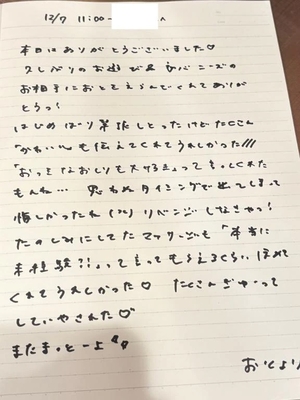 12/7 11:00-
本日はありがとうございました♡
久しぶりのお遊び & 良バニーズの
お相手におとをえらんでくれてありが
とうっ!
はじめばり緊張しとったけどたくさん
「かわいい」も伝えてくれてうれしかった///
って言ってくれた
もんね… 思わぬタイミングで出てしまって
悔しかったね リベンジしなきゃっ!
たのしみにしてたマックでも「本当に
未経験?!」って言ってもらえるくらい ほめて
くれてうれしかった♡ たくさんぎゅーって
していやされた♡
またまっとーよ
おとより